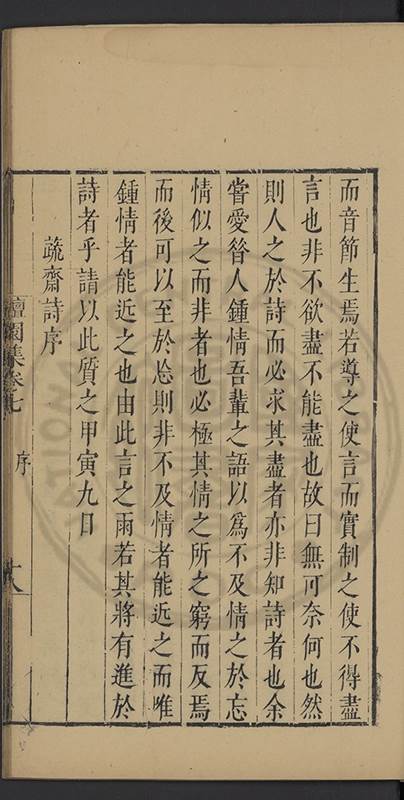 而音節生焉若導之使言而實制之使不得盡
言也非不欲盡不能盡也故曰無可奈何也然
則人之於詩而必求其盡者亦非知詩者也余
嘗愛昝人鍾情吾輩之語以為不及情之於忘
情似之而非者也必極其情之所之窮而反焉
而後可以至於忘則非不及情者能近之而唯
鍾情者能近之也由此言之雨若其將有進於
詩者乎請以此質之甲寅九日
蔬齋詩序
檀園集卷七
序